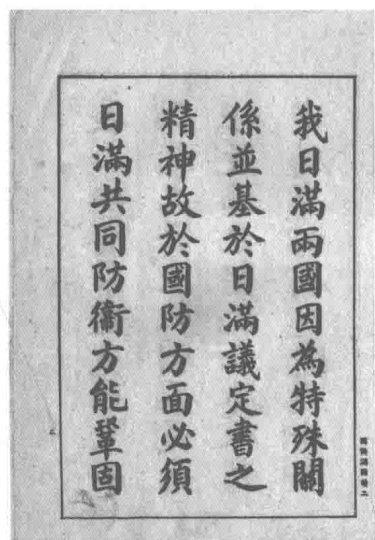 我日滿兩國因為特殊關
係並基於日滿議定書之
精神故於國防方面必須
日滿共同防衛方能鞏固